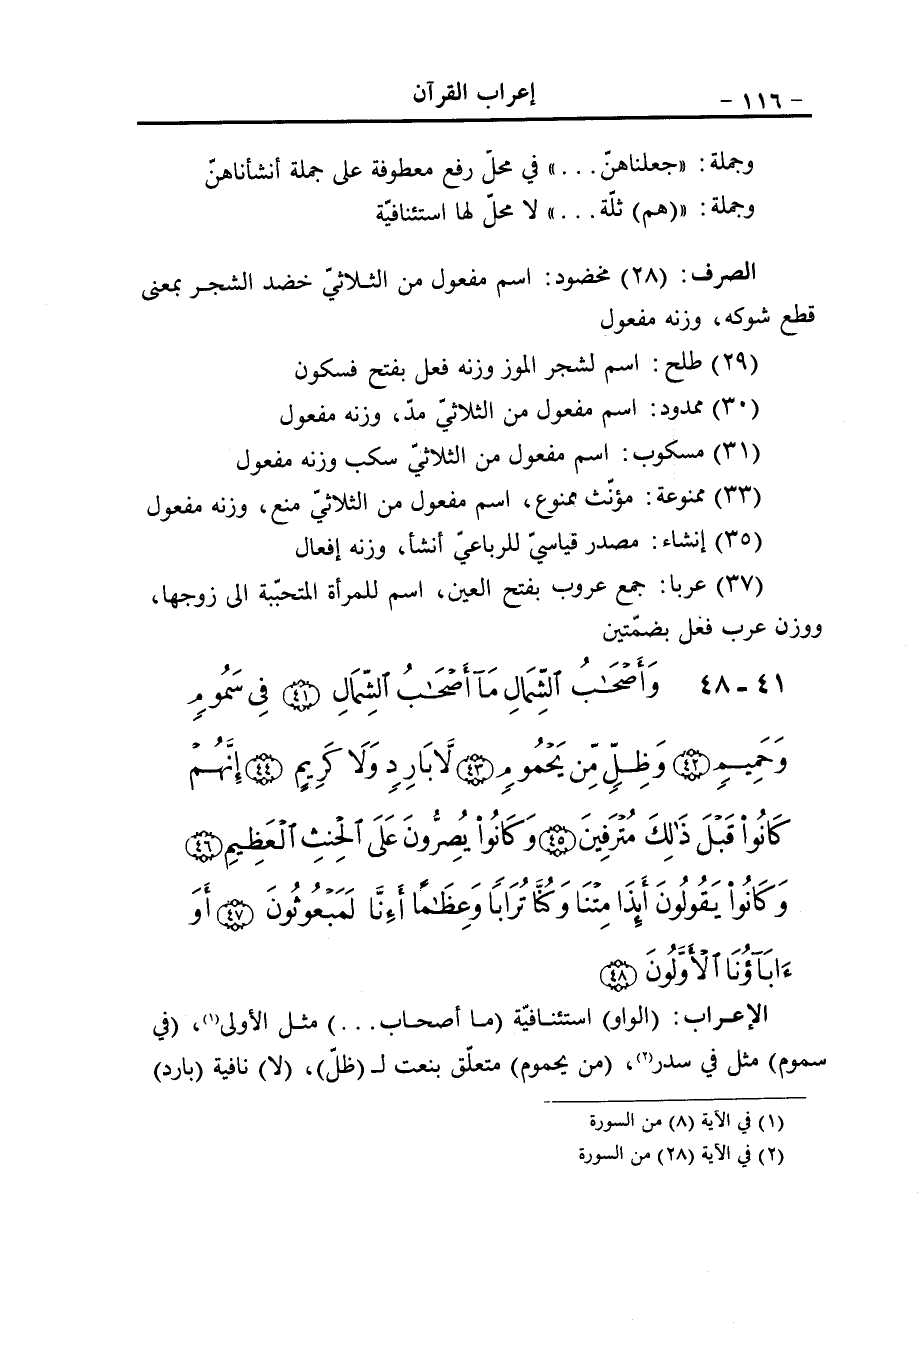 - ١١٦ - إعراب القرآن
وجملة: «جعلناهنّ...» في محلّ رفع معطوفة على جملة أنشأناهنّ
وجملة: «(هم) ثلّة...» لا محلّ لها استئنافيّة
الصرف: (٢٨) مخضود: اسم مفعول من الثلاثيّ خضد الشجر بمعنى
قطع شوكه، وزنه مفعول
(٢٩) طلح: اسم لشجر الموز وزنه فعل بفتح فسكون
(٣٠) ممدود: اسم مفعول من الثلاثيّ مدّ، وزنه مفعول
(٣١) مسكوب: اسم مفعول من الثلاثيّ سكب وزنه مفعول
(٣٣) ممنوعة: مؤنّث ممنوع، اسم مفعول من الثلاثيّ منع، وزنه مفعول
(٣٥) إنشاء: مصدر قياسيّ للرباعيّ أنشأ، وزنه إفعال
(٣٧) عربا: جمع عروب بفتح العين، اسم للمرأة المتحبّبة الى زوجها،
ووزن عرب فعل بضمّتين
٤١ - ٤٨ وَأَصْحَٰبُ ٱلشِّمَالِ مَآ أَصْحَٰبُ ٱلشِّمَالِ ﴿٤١﴾ فِى سَمُومٍ
وَحَمِيمٍ ﴿٤٢﴾ وَظِلٍّ مِّن يَحْمُومٍ ﴿٤٣﴾ لَّا بَارِدٍ وَلَا كَرِيمٍ ﴿٤٤﴾ إِنَّهُمْ
كَانُوا۟ قَبْلَ ذَٰلِكَ مُتْرَفِينَ ﴿٤٥﴾ وَكَانُوا۟ يُصِرُّونَ عَلَى ٱلْحِنثِ ٱلْعَظِيمِ ﴿٤٦﴾
وَكَانُوا۟ يَقُولُونَ أَئِذَا مِتْنَا وَكُنَّا تُرَابًا وَعِظَٰمًا أَءِنَّا لَمَبْعُوثُونَ ﴿٤٧﴾ أَوَ
ءَابَآؤُنَا ٱلْأَوَّلُونَ ﴿٤٨﴾
الإعراب: (الواو) استئنافيّة (ما أصحاب...) مثل الأولى(١)، (في
سموم) مثل في سدر(٢)، (من يحموم) متعلّق بنعت لـ (ظلّ)، (لا) نافية (بارد)
(١) في الآية (٨) من السورة
(٢) في الآية (٢٨) من السورة